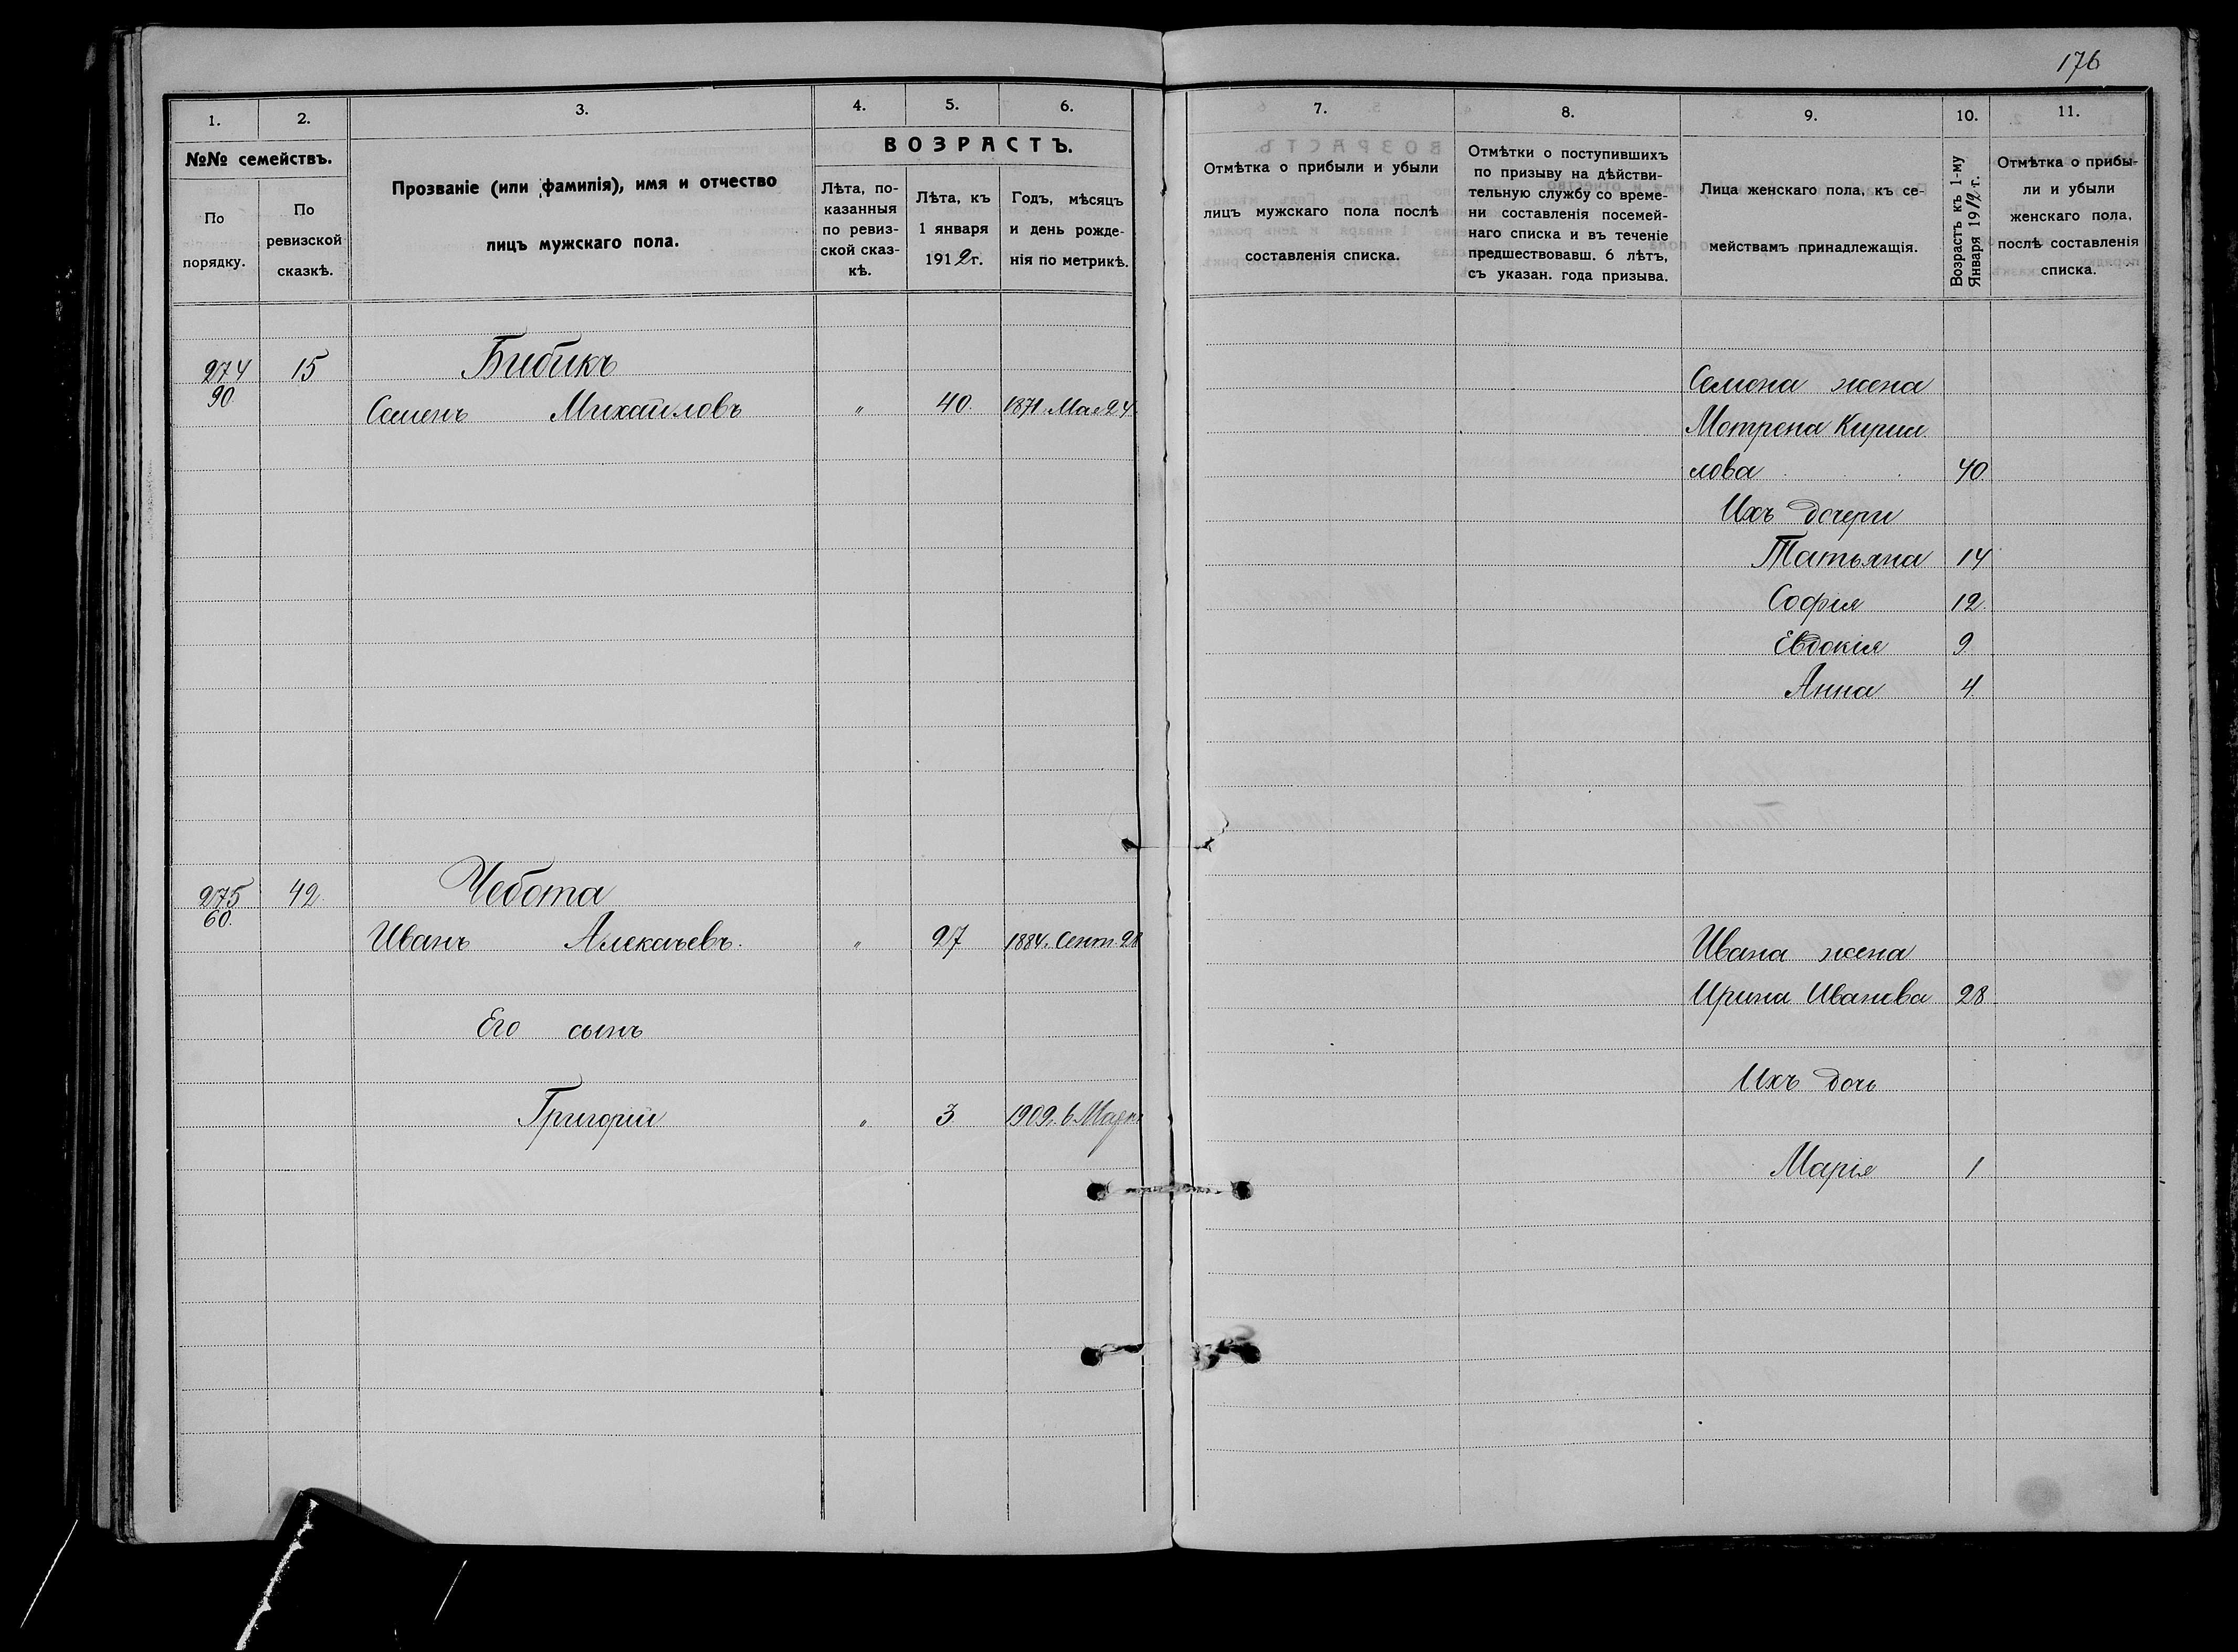 176
1. 2. 3. 4. 5. 6.
№№ семействъ.
По порядку.
По ревизской сказкѣ.
Прозваніе (или фамилія), имя и отчество
лицъ мужскаго пола.
ВОЗРАСТЪ.
Лѣта, по-
казанныя
по ревиз-
ской сказ-
кѣ.
Лѣта, къ
1 января
1912 г.
Годъ, мѣсяцъ
и день рожде-
нія по метрикѣ.
274 15 Бибикъ
90
Семенъ Михайловъ " 40. 1871. Мая 24
275 42. Чебота
60.
Иванъ Алексѣевъ. " 27 1884. Сент. 28
Его сынъ
Григорій " 3. 1909. 6 Марта
7. 8. 9. 10. 11.
Отмѣтка о прибыли и убыли
лицъ мужскаго пола послѣ
составленія списка.
Отмѣтки о поступившихъ
по призыву на дѣйстви-
тельную службу со време-
ни составленія посемей-
наго списка и въ теченіе
предшествовавш. 6 лѣтъ,
съ указан. года призыва.
Лица женскаго пола, къ се-
мействамъ принадлежащія.
Возрастъ къ 1-му
Января 1912 г.
Отмѣтка о прибы-
ли и убыли
женскаго пола,
послѣ составленія
списка.
Семена жена
Мотрена Кирил
лова 40
Ихъ дочери
Татьяна 14
Софія 12.
Евдокія 9
Анна 4.
Ивана жена
Ирина Иванова 28
Ихъ дочь
Марія 1